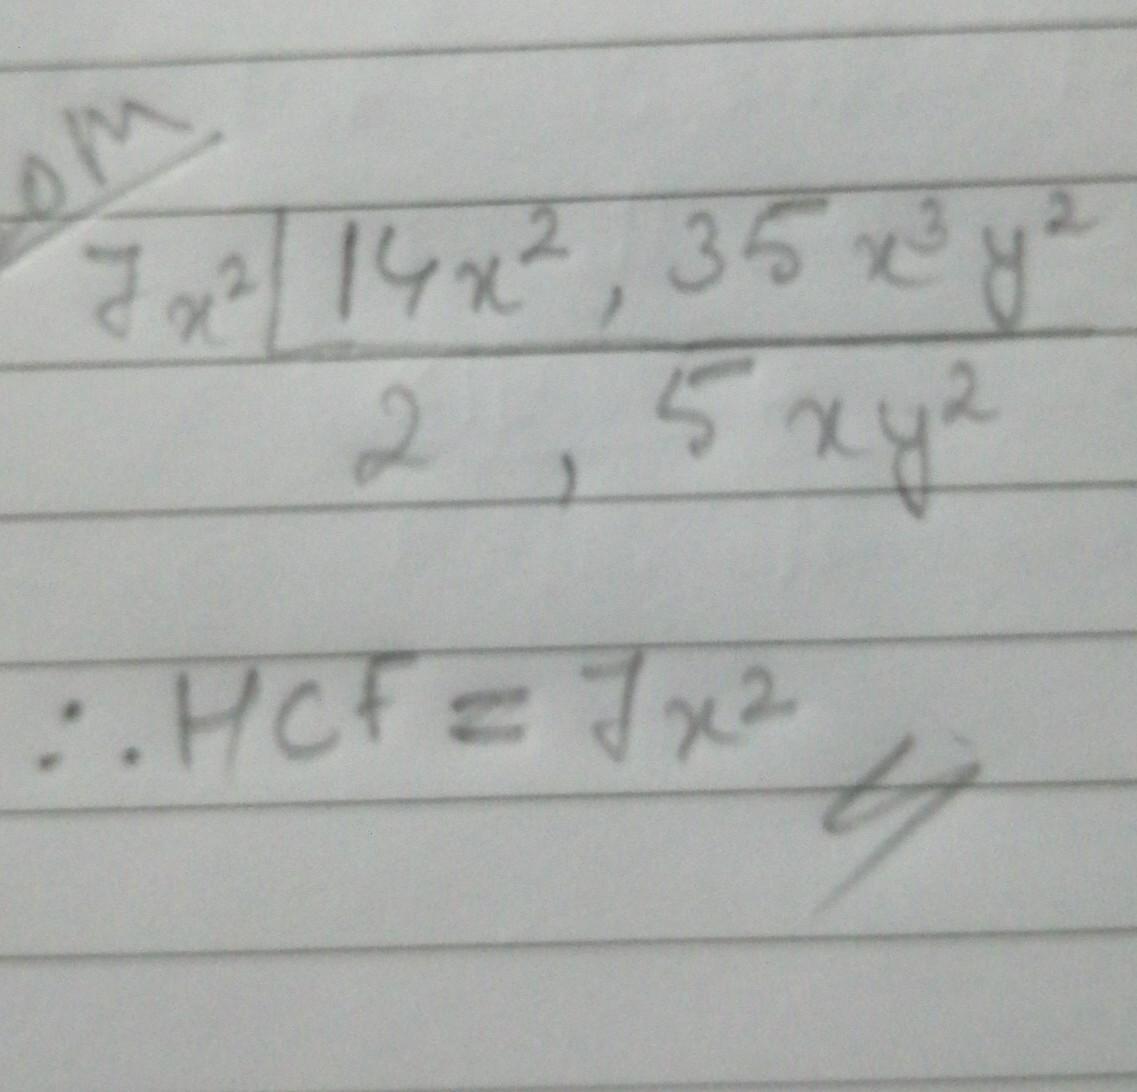 OM
7x² | 14x², 35x³y²
2, 5xy²
∴ HCF = 7x²